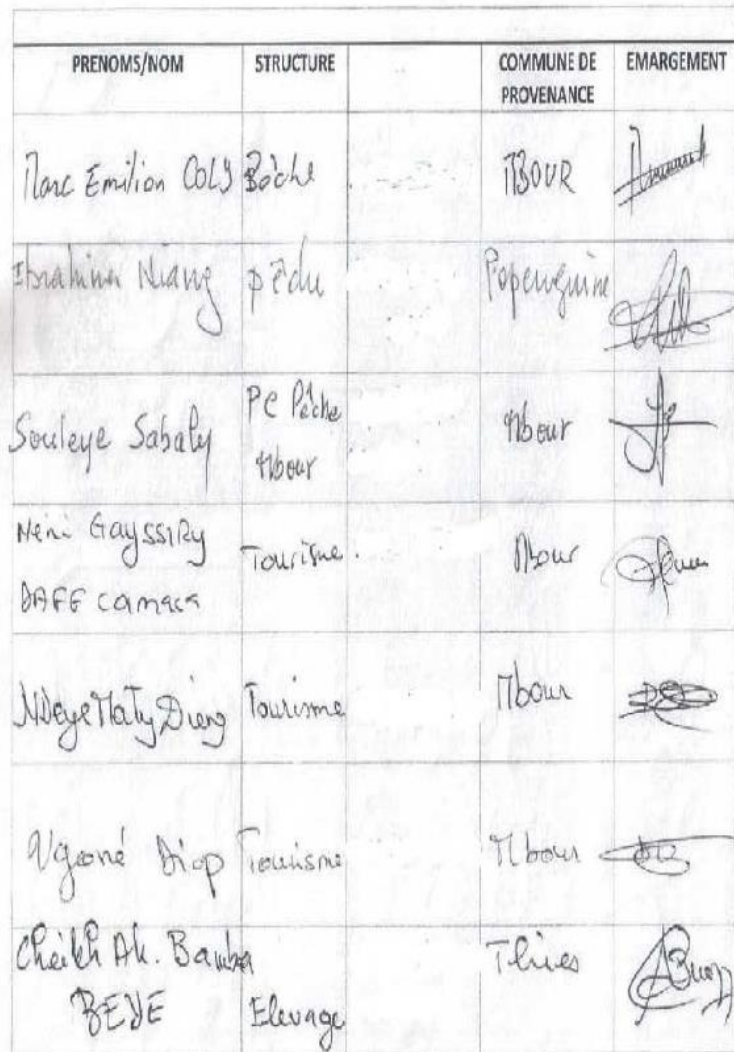 PRENOMS/NOM STRUCTURE COMMUNE DE PROVENANCE EMARGEMENT
Marc Emilion COLY Pêche MBOUR
Ibrahima Niang pêche Popenguine
Souleye Sabaly PC Pêche Mbour Mbour
Gayssiry Tourisme Mbour
DAFE camara
Ndeye Maty Dieng Tourisme Mbour
Ngoné Diop Tourisme Mbour
Cheikh Ah. Bamba Thies
BEYE Elevage